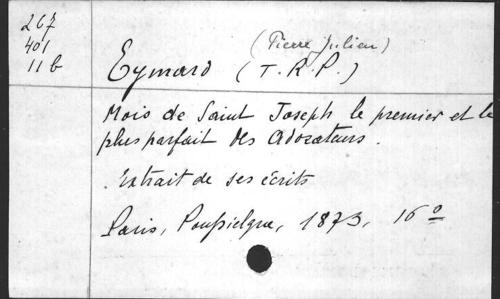 267
401
11 b
(Pierre Julien)
Eymard (T. R. P.)
Mois de Saint Joseph le premier et le
plus parfait des Adorateurs.
Extrait de ses écrits
Paris, Poussielgue, 1873, 16o